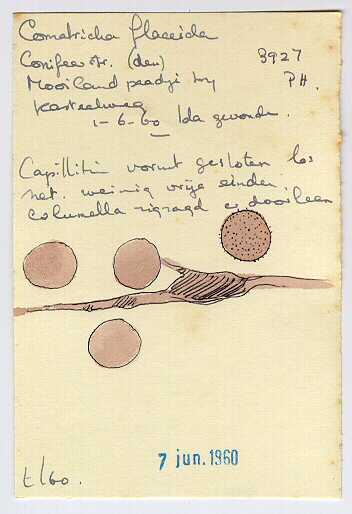 Comatricha flaccida
Conifeer str. (den) 3927
Mooiland paadje bij PH.
Kasteelweg
1-6-60 Ida gevonden.
Capillitium vormt gesloten
net weinig vrije einden
columella zigzagd er doorheen
7 jun. 1960
t/60.